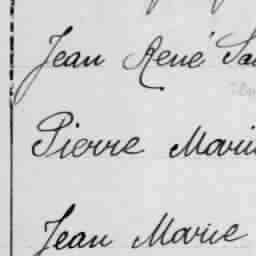 Jean René
Pierre Marie
Jean Marie